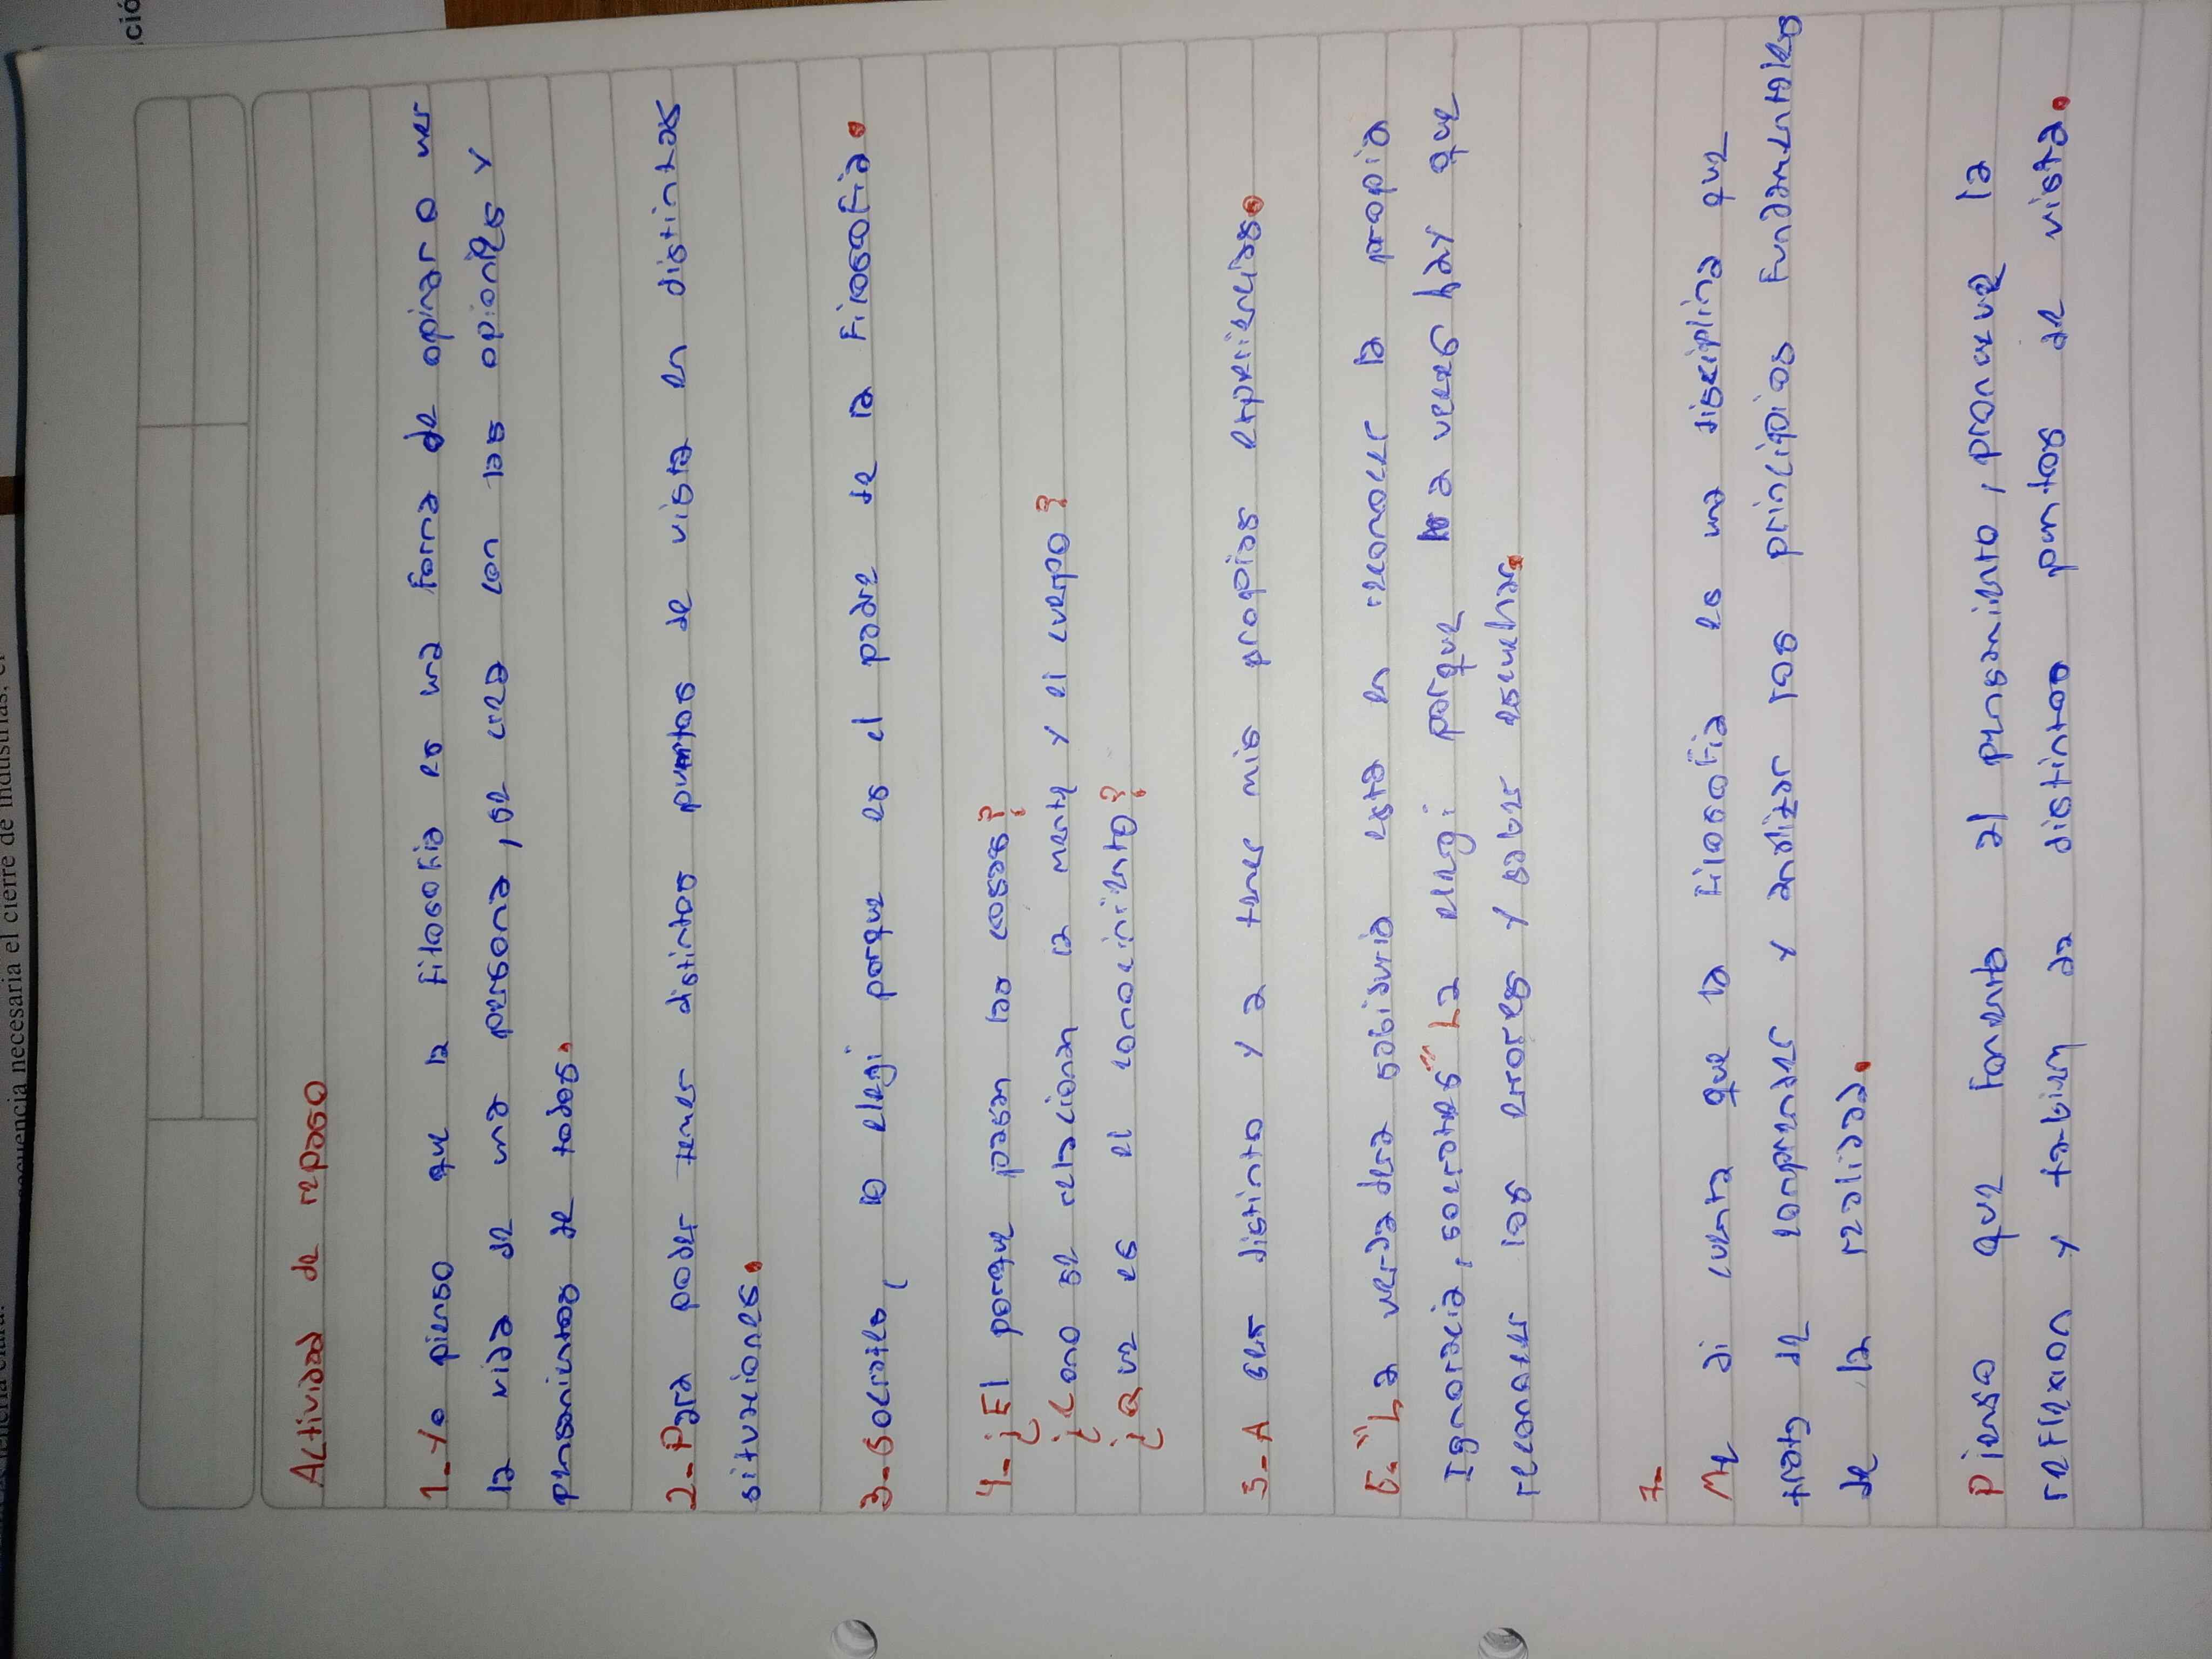 Actividad de repaso
1- Yo pienso que la filosofia es una forma de opinar o ver
la vida de una persona, se cruza con las opioniqes y
pensamientos de todos.
2- Para poder tener distintos puntos de vista en distintas
situaciones.
3- Socrates, lo elegi porque es el padre de la Filosofia.
4- ¿El porque pasan las cosas?
¿Cono se relacionan la mente y el cuerpo?
¿Que es el conocimiento?
5- A ser distinto y a tener mis propias experiencias.
6- "La verdadera sabiduria esta en reconocer la propia
Ignoracia, socrates" La elegi porque a veces hay que
reconocer los erores y saber escuchar.
7-
Me di cuenta que la Filosofia es una disciplina que
trata de conprender y analizar los principios Fundamentales
de la realidad.
Pienso que Fomenta al pensamiento, pronueve la
reFlexion y tanbien da distintos puntos de vista.
ció
secuencia necesaria el cierre de industrias, el